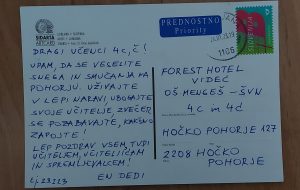 SIDARTA
ARTCARD
PREDNOSTNO
Priority
DRAGI UČENCI 4.c, Č!
UPAM, DA SE VESELITE
SNEGA IN SMUČANJA NA
POHORJU. UŽIVAJTE
V LEPI NARAVI, UBOGAJTE
SVOJE UČITELJE, ZVEČER
SE POZABAVAJTE, KAKŠNO
ZAPOJTE!
LEP POZDRAV VSEM, TUDI
UČITELJEM, UČITELJICAM
IN SPREMLJEVALCEM!
EN DEDI
FOREST HOTEL
VIDEC
OŠ MENGEŠ - ŠVN
4c in 4č
HOČKO POHORJE 127
2208 HOČKO
POHORJE